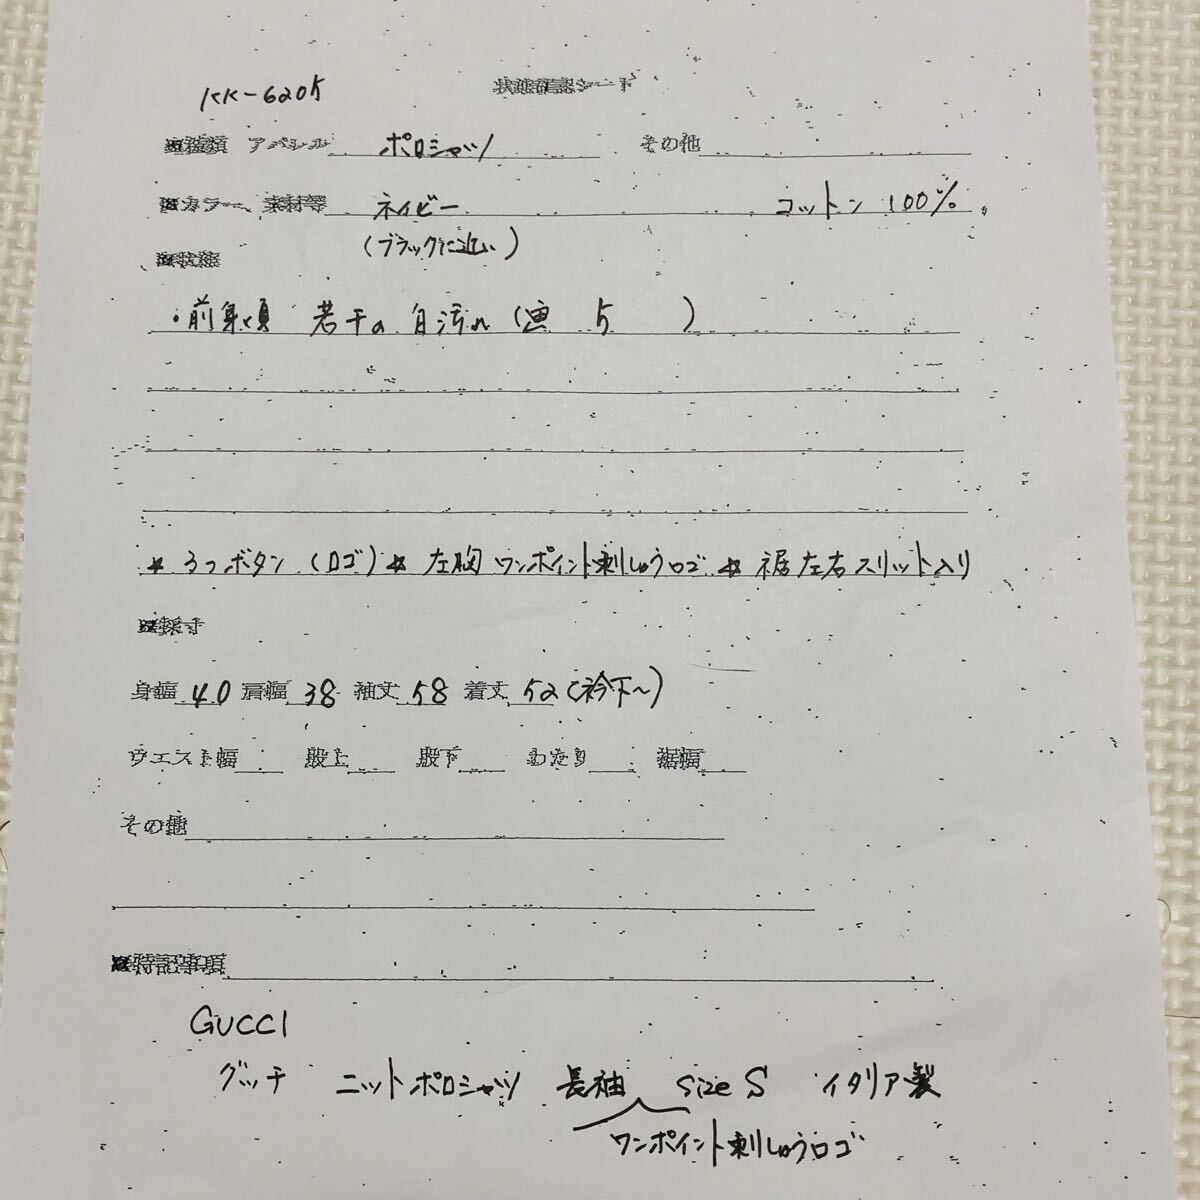 KK-6205 状態確認シート
※種類 アパレル ポロシャツ その他
※カラー、素材等 ネイビー コットン 100%
(ブラックに近い)
※状態
・前身頃 若干の白汚れ (画 5 )
★ 3つボタン (ロゴ) ★ 左胸 ワンポイント刺しゅうロゴ ★ 裾左右スリット入り
※採寸
身幅 40 肩幅 38 袖丈 58 着丈 52 (衿下〜)
ウエスト幅 股上 股下 わたり 裾幅
その他
※特記事項
GUCCI
グッチ ニットポロシャツ 長袖 size S イタリア製
ワンポイント刺しゅうロゴ